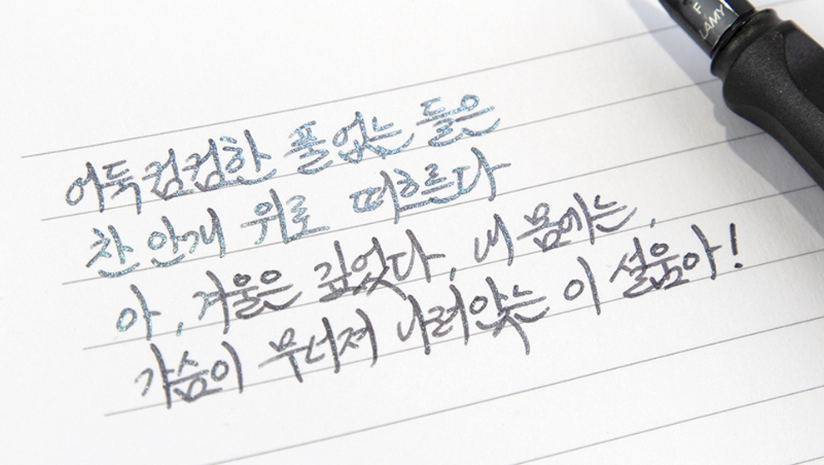 F
LAMY
어둑컴컴한 풀없는 들은
찬 안개 위로 떠흐르다
아, 겨울은 깊었다, 내 몸에는,
가슴이 무너져 나려앉는 이 설움아!